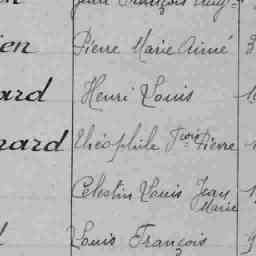 Pierre Marie Aimé
Henri Louis
Théophile Fois Pierre
Célestin Louis Jean
Marie
Louis François